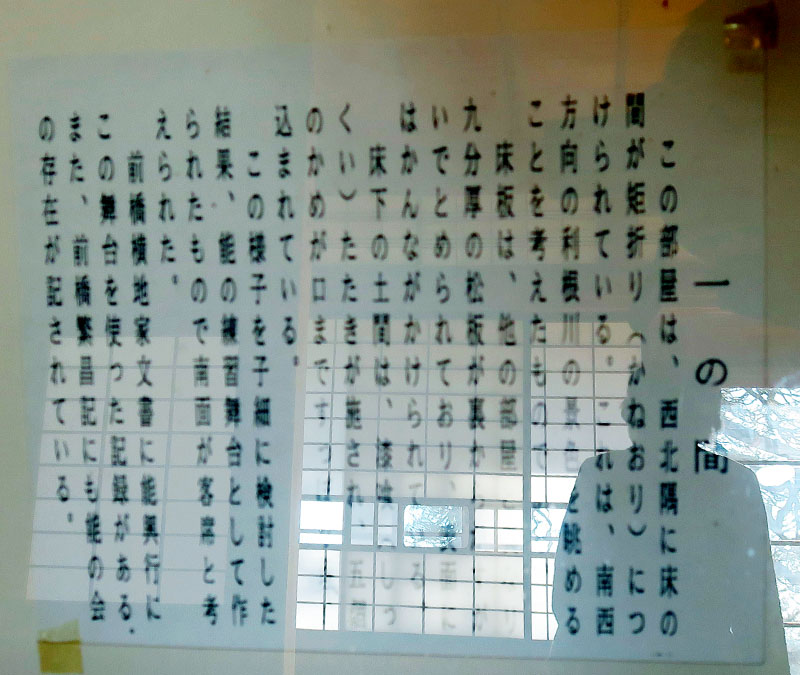 一の間
この部屋は、西北隅に床の
間が矩折り(かねおり)につ
けられている。これは、南西
方向の利根川の景色を眺める
ことを考えたもので
床板は、他の部屋
九分厚の松板が裏か
いでとめられており、表面に
はかんながかけられて
床下の土間は、漆喰(しっ
くい)たたきが施され、五
のかめが口まですっ
込まれている。
この様子を子細に検討した
結果、能の練習舞台として作
られたもので南面が客席と考
えられた。
前橋横地家文書に能興行に
この舞台を使った記録がある。
また、前橋繁昌記にも能の会
の存在が記されている。